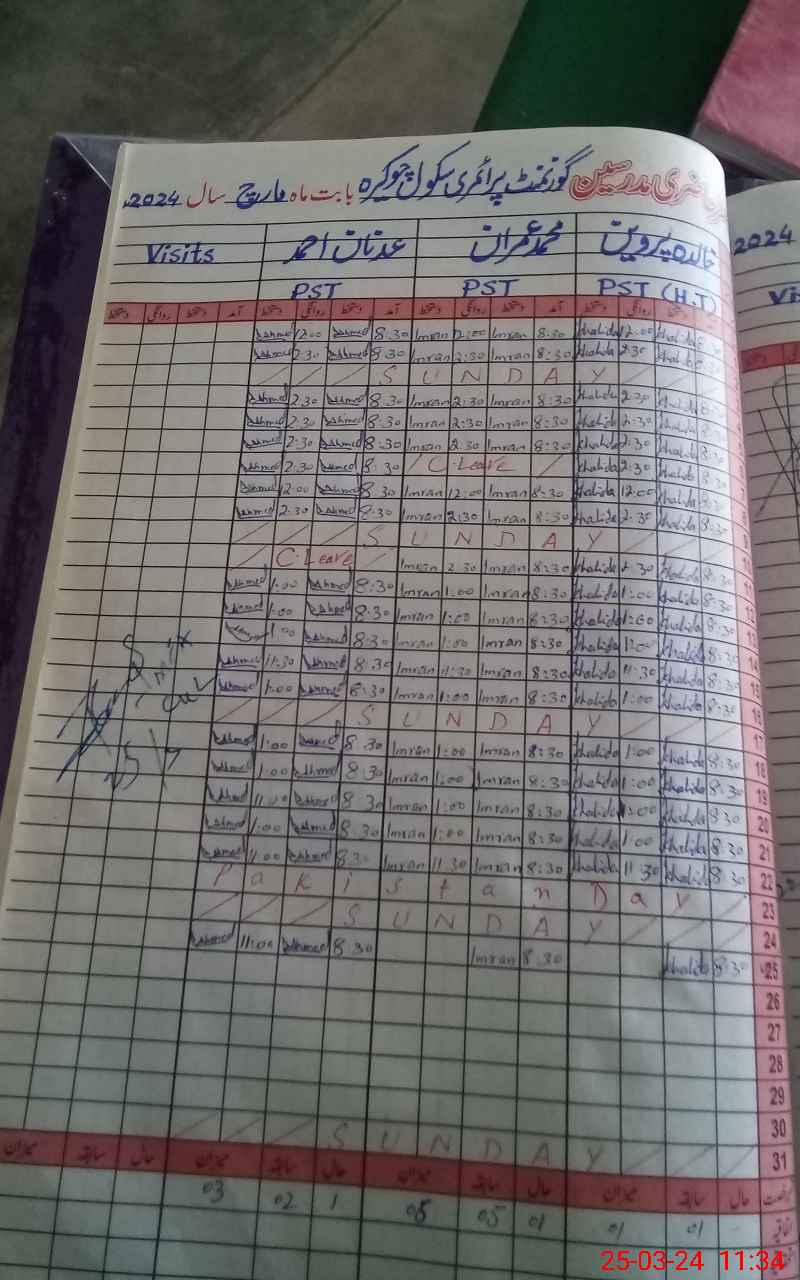 حاضری مدرسین گورنمنٹ پرائمری سکول چوکیرہ بابت ماہ مارچ سال 2024ء
خالدہ پروین محمد عمران عدنان احمد Visits
PST (H.T) PST PST
دستخط روانگی دستخط آمد دستخط روانگی دستخط آمد دستخط روانگی دستخط آمد دستخط روانگی دستخط
Khalida 12:00 Khalida 8:30 Imran 12:00 Imran 8:30 Ahmed 12:00 Ahmed
Khalida 2:30 Khalida 8:30 Imran 2:30 Imran 8:30 Ahmed 2:30 Ahmed
SUNDAY
8:30 Khalida 2:30 Khalida 8:30 Imran 2:30 Imran 8:30 Ahmed 2:30 Ahmed
8:30 Khalida 2:30 Khalida 8:30 Imran 2:30 Imran 8:30 Ahmed 2:30 Ahmed
8:30 Khalida 2:30 Khalida 8:30 Imran 2:30 Imran 8:30 Ahmed 2:30 Ahmed
7 8:30 Khalida 2:30 Khalida C.Leave 8:30 Ahmed 2:30 Ahmed
8 8:30 Khalida 12:00 Khalida 8:30 Imran 12:00 Imran 8:30 Ahmed 12:00 Ahmed
9 8:30 Khalida 2:30 Khalida 8:30 Imran 2:30 Imran 8:30 Ahmed 2:30 Ahmed
10 SUNDAY
11 8:30 Khalida 2:30 Khalida 8:30 Imran 2:30 Imran C.Leave
12 8:30 Khalida 1:00 Khalida 8:30 Imran 1:00 Imran 8:30 Ahmed 1:00 Ahmed
13 8:30 Khalida 1:00 Khalida 8:30 Imran 1:00 Imran 8:30 Ahmed 1:00 Ahmed
14 8:30 Khalida 1:00 Khalida 8:30 Imran 1:00 Imran 8:30 Ahmed 1:00
15 8:30 Khalida 11:30 Khalida 8:30 Imran 11:30 Imran 8:30 Ahmed 11:30 Ahmed
16 8:30 Khalida 1:00 Khalida 8:30 Imran 1:00 Imran 8:30 Ahmed 1:00 Ahmed
17 SUNDAY
18 8:30 Khalida 1:00 Khalida 8:30 Imran 1:00 Imran 8:30 Ahmed 1:00 Ahmed
19 8:30 Khalida 1:00 Khalida 8:30 Imran 1:00 Imran 8:30 Ahmed 1:00 Ahmed
20 8:30 Khalida 1:00 Khalida 8:30 Imran 1:00 Imran 8:30 Ahmed Ahmed
21 8:30 Khalida 1:00 Khalida 8:30 Imran 1:00 Imran 8:30 Ahmed 1:00 Ahmed
22 8:30 Khalida 11:30 Khalida 8:30 Imran 11:30 Imran 8:30 Ahmed 11:00 Ahmed
23 Pakistan Day
24 SUNDAY
25 8:30 Khalida 8:30 Imran 8:30 Ahmed 11:00 Ahmed
26
27
28
29
30
31 SUNDAY
حال سابقہ میزان حال سابقہ میزان حال سابقہ میزان حال سابقہ میزان
- 01 01 01 05 05 1 02 03
2024
25-03-24 11:34